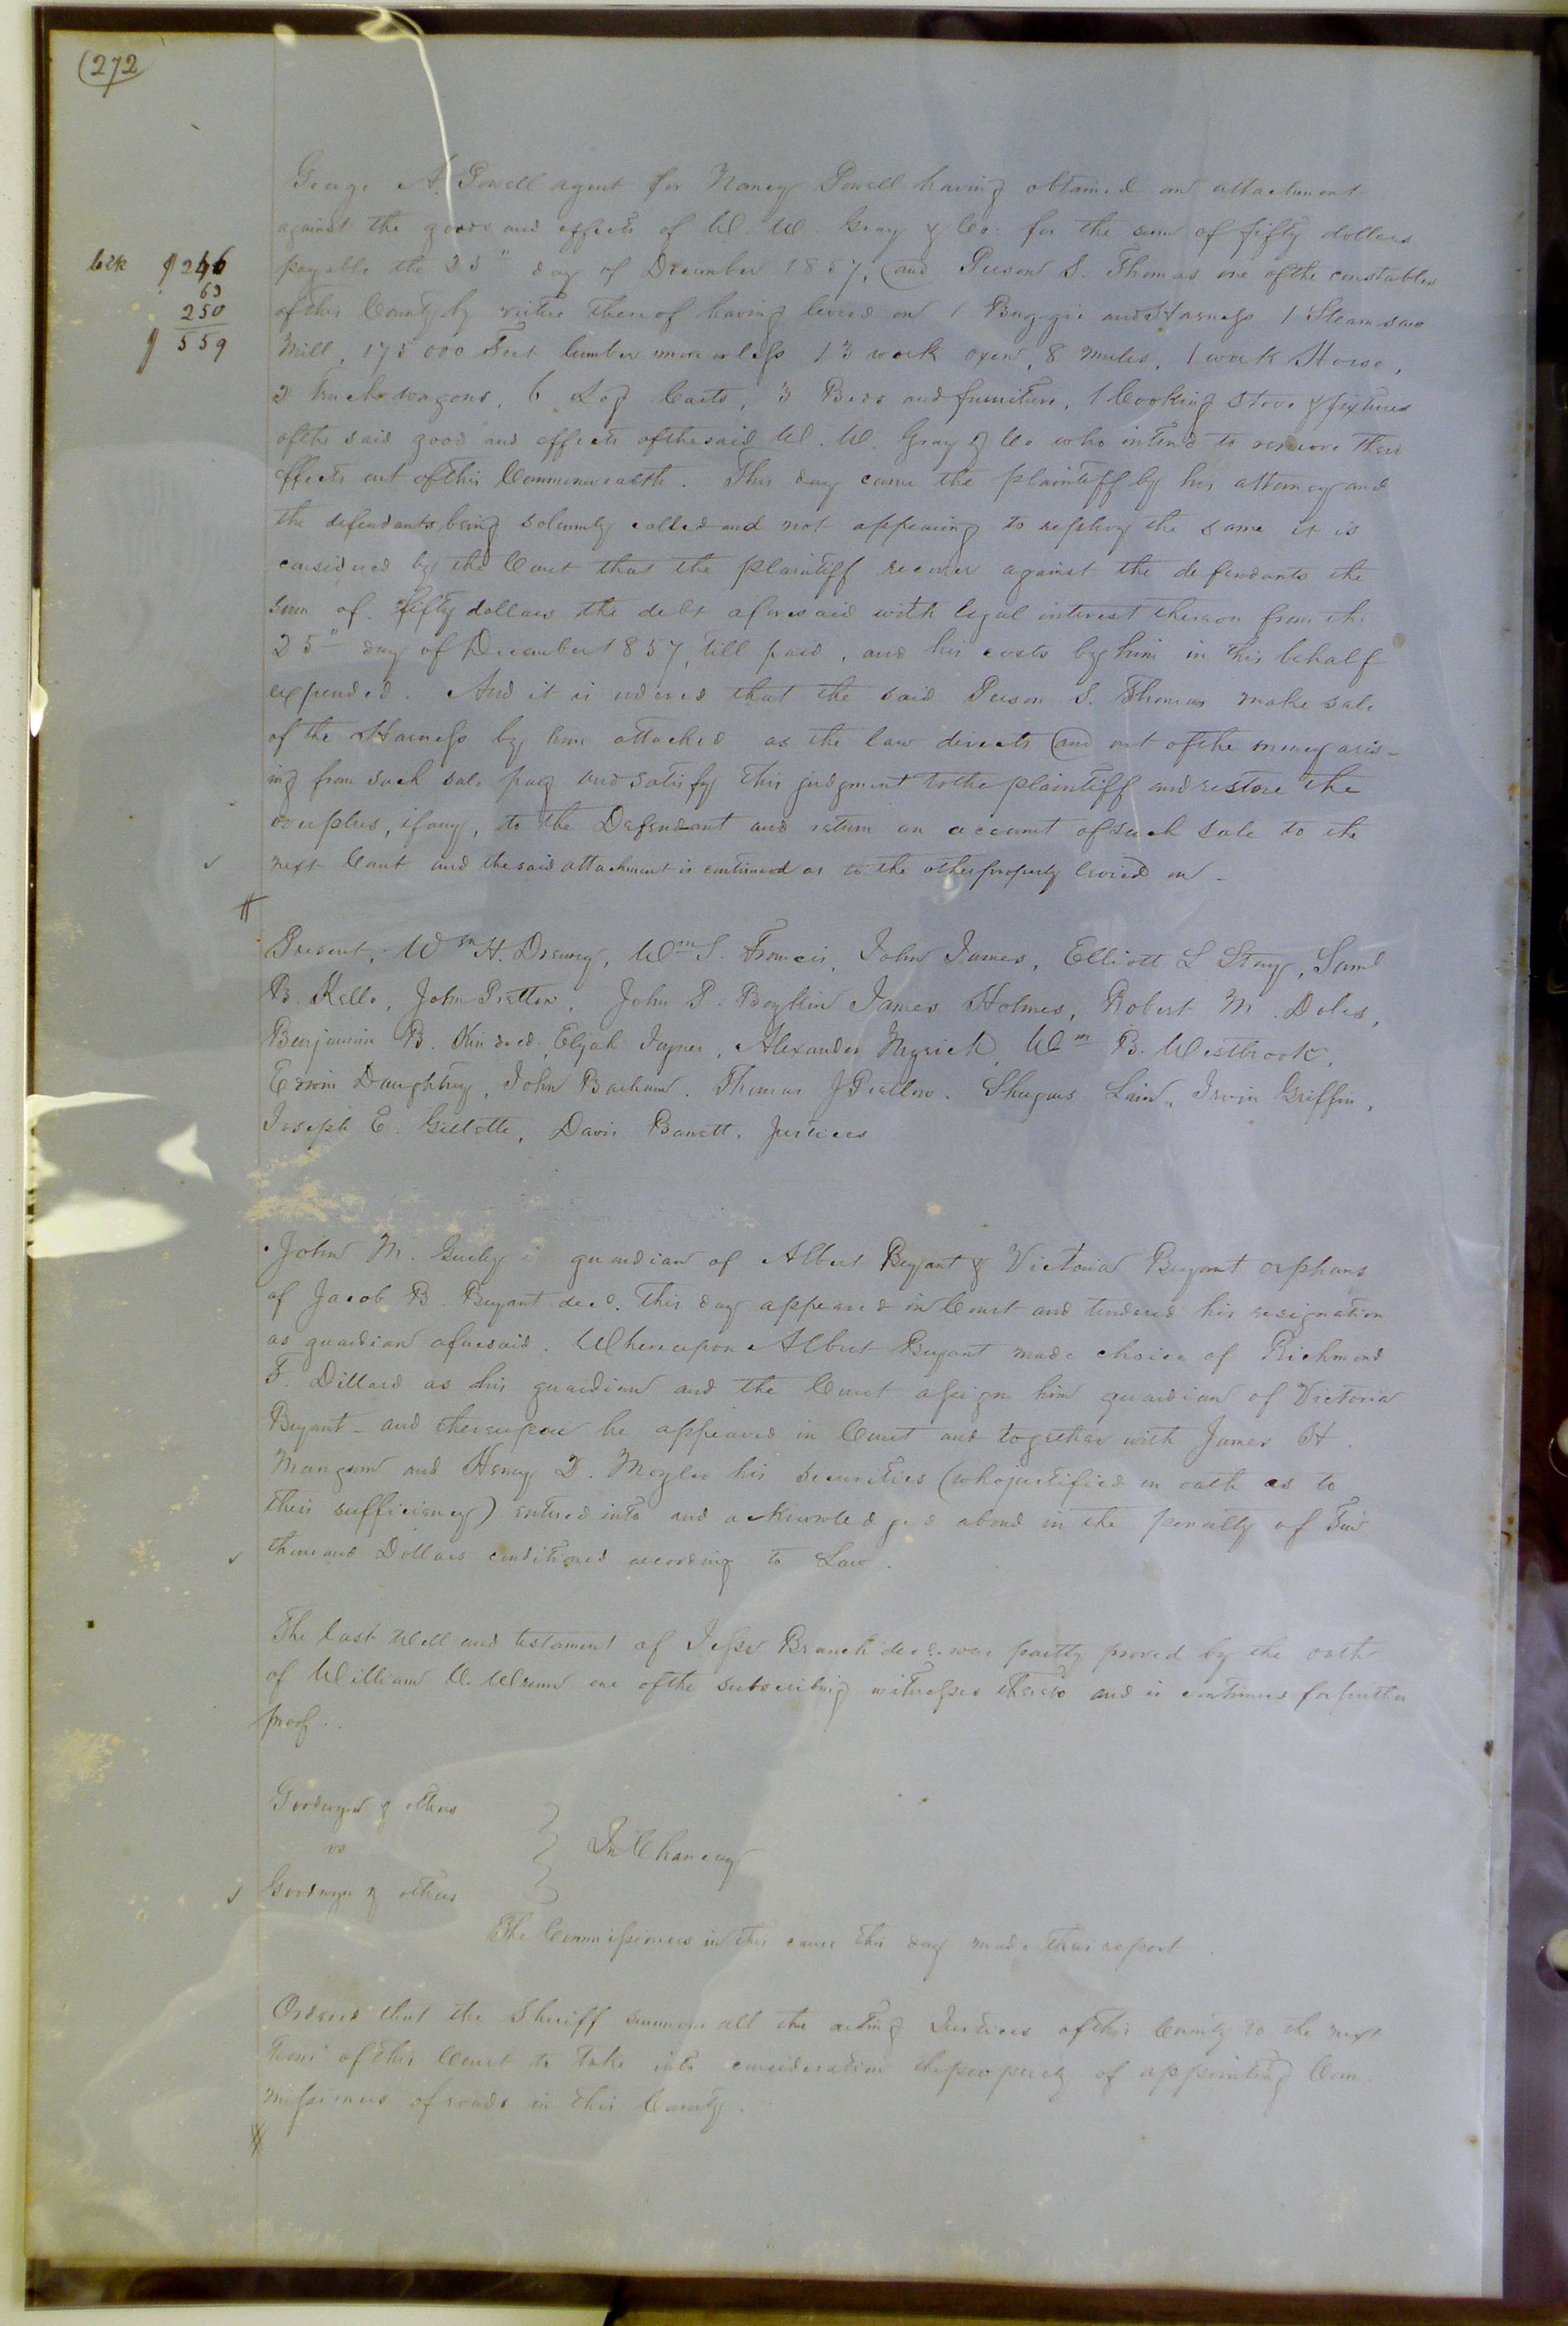 (272
George A. Powell agent for Nancy Powell having obtained an attachment
against the goods and effects of W. W. Gray & Co. for the sum of fifty dollars
Clk $ 246
payable the 25" day of December 1857, (and S. Thomas one of the constables
63
250
of this County by virtue thereof having levied on 1 Buggie and Harness 1 Steam saw
$ 559
Mill, 175 000 Feet lumber more or less 13 work oxen, 8 mules, 1 work Horse,
wagons, 6 Log Carts, 3 Beds and furniture, 1 Cooking Stove & fixtures
of the said good and effects of the said W. W. Gray & Co who intend to remove their
effects out of this Commonwealth. This day came the plaintiff by his attorney and
the defendants being solemnly called and not appearing to replevy the same it is
considered by the Court that the plaintiff recover against the defendants the
sum of fifty dollars the debt aforesaid with legal interest thereon from the
25" day of December 1857, till paid, and his costs by him in this behalf
expended. And it is ordered that the said S. Thomas make sale
of the Harness by him attached as the law directs (and out of the money aris-
ing from such sale pay and satisfy this judgment to the plaintiff and restore the
overplus, if any, to the Defendant and return an account of such sale to the
next Court and the said attachment is continued as to the other property levied on -
Present, Wm H. Drewry, Wm S. Francis, John James, Elliott L Story, Saml
B. Kello, John Pretlow, John P. Boykin James Holmes, Robert M. Doles,
Benjamin B. Kindred, Elijah Joyner, Alexander Myrick, Wm B. Westbrook,
Erwin Daughtry, John Barham, Thomas J Pretlow, Lain, Irvin Griffin,
Joseph E. Gillette, Davis Barrett, Justices
John M. Gurley guardian of Albert Bryant & Victoria Bryant orphans
of Jacob B. Bryant decd. this day appeared in Court and tendered his resignation
as guardian aforesaid. Whereupon Albert Bryant made choice of Richmond
F. Dillard as his guardian and the Court assign him guardian of Victoria
Bryant - and thereupon he appeared in Court and together with James H.
Mangum and Henry D. his securities (who justified on oath as to
their sufficiency) entered into and acknowledged a bond in the penalty of
thousand Dollars conditioned according to Law.
The last Will and testament of Jesse Branch decd. was partly proved by the oath
of William one of the subscribing witnesses thereto and is continued for further
proof.
Goodwyn & others
vs
In Chancery
Goodwyn & others
The Commissioners in this cause this day made their report.
Ordered that the Sheriff summon all the acting Justices of this County to the next
Term of this Court to take into consideration the propriety of appointing Com-
missioners of roads in this County.